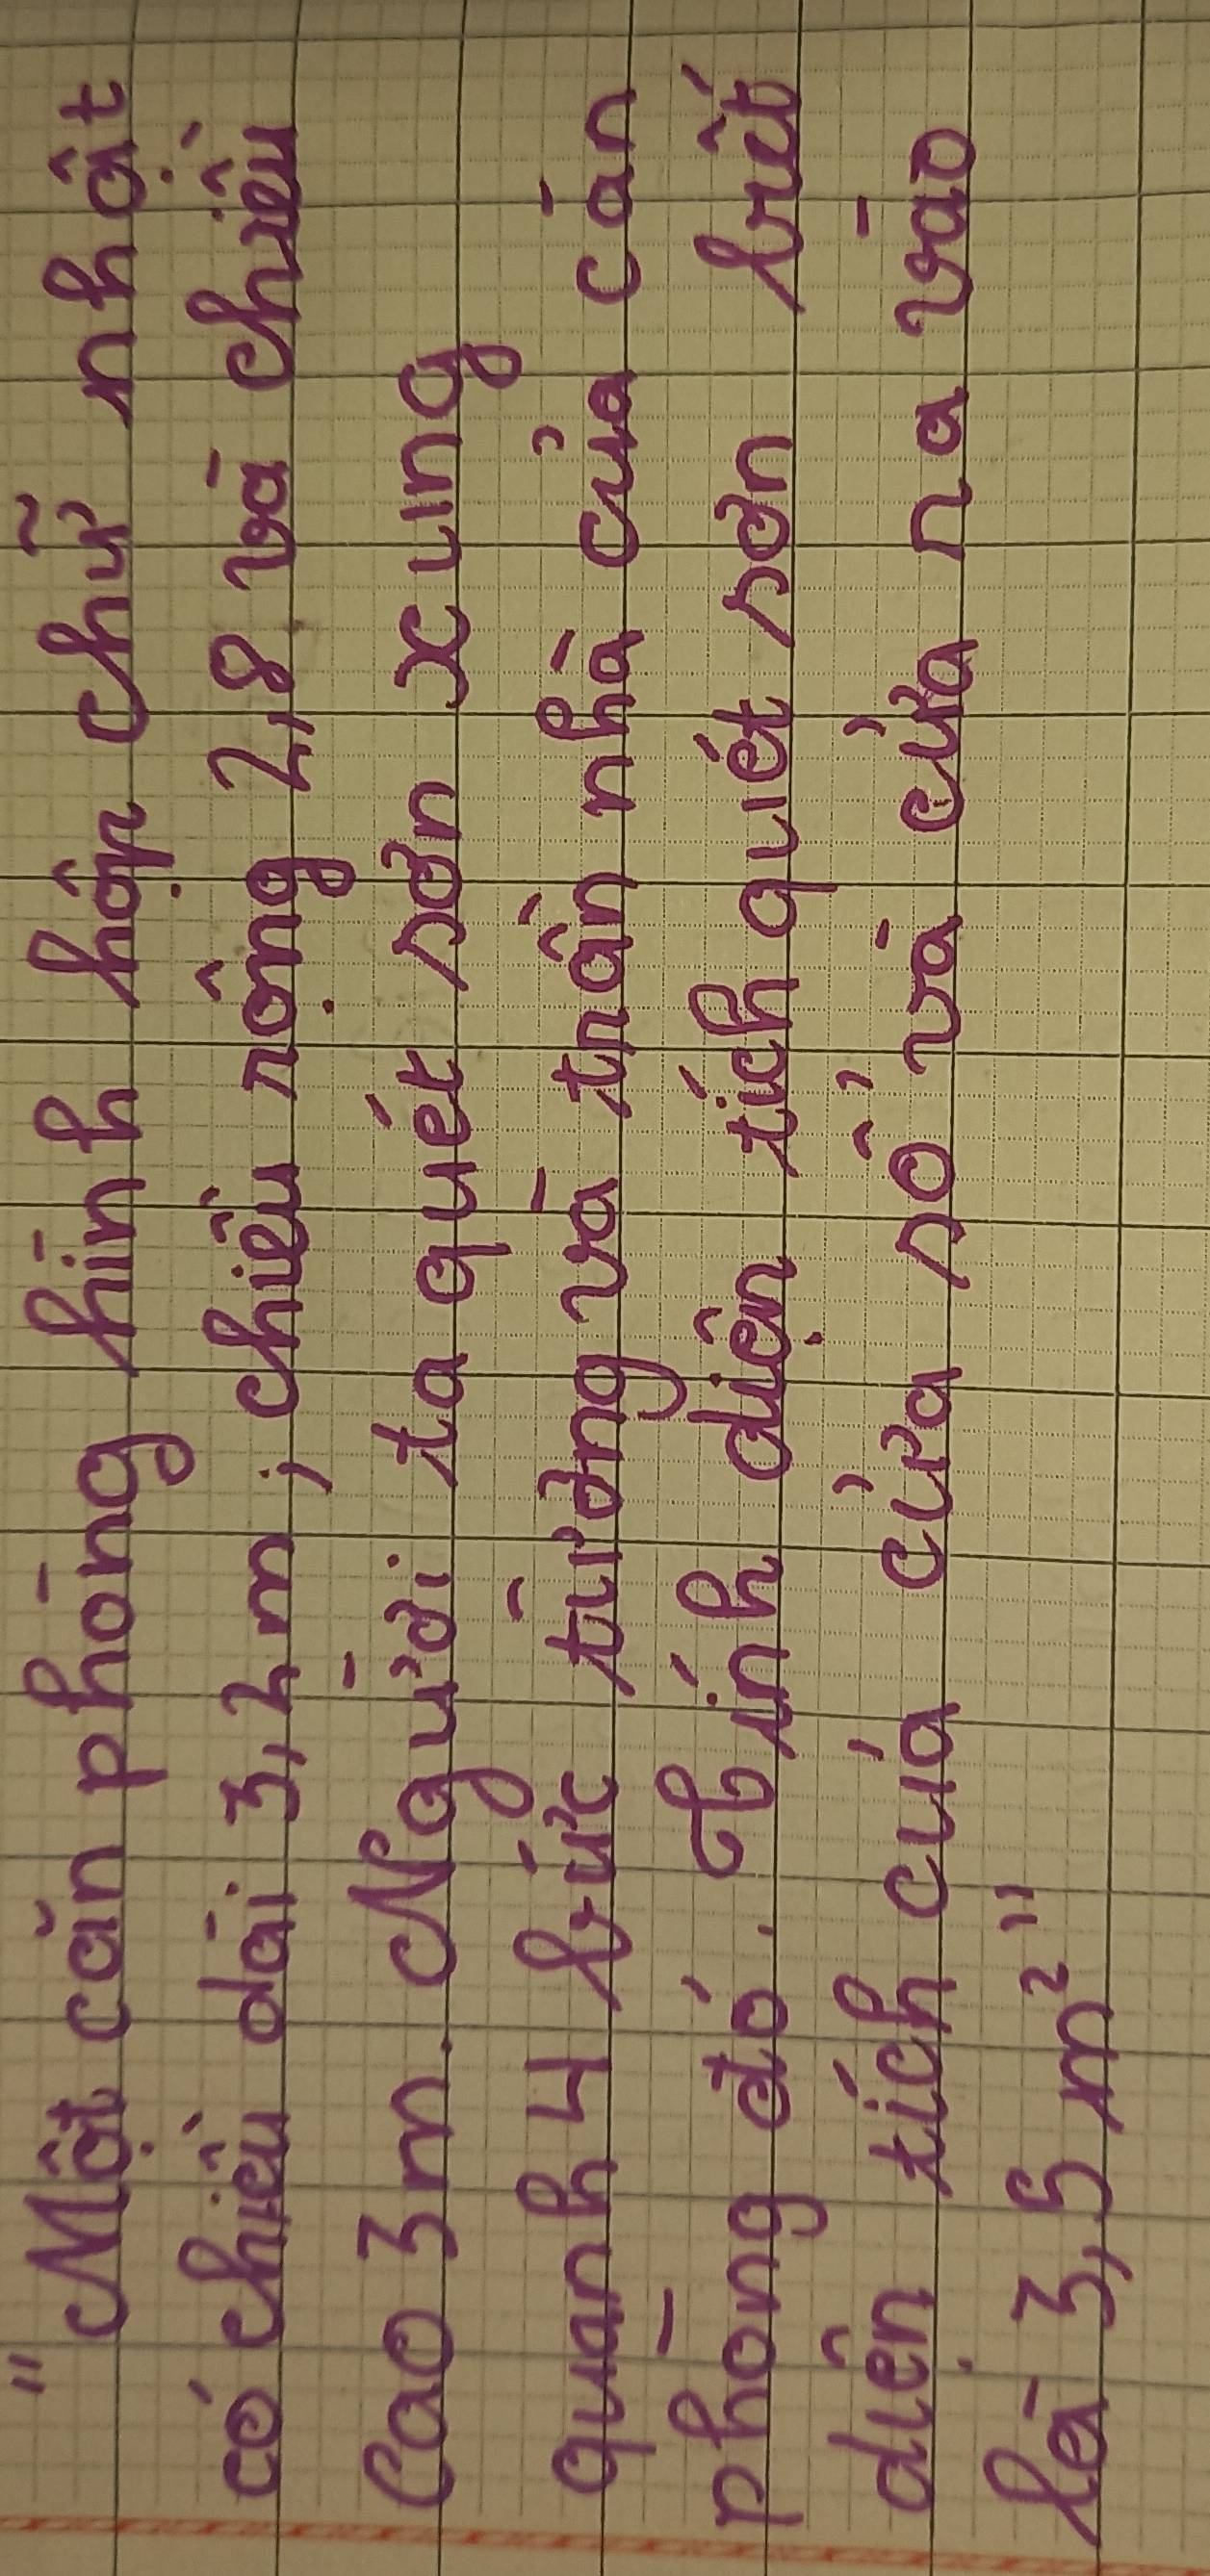 " Một căn phòng hình hộp chữ nhật
có chiều dài 3,2 m ; chiều rộng 2,8 và chiều
Cao 3 m. Người ta quét sơn xung
quanh 4 bức tường và trần nhà của căn
phòng đó. Tính diện tích quét sơn biết
diện tích cuả cửa sổ và cửa ra vào
là 3,5 m² "